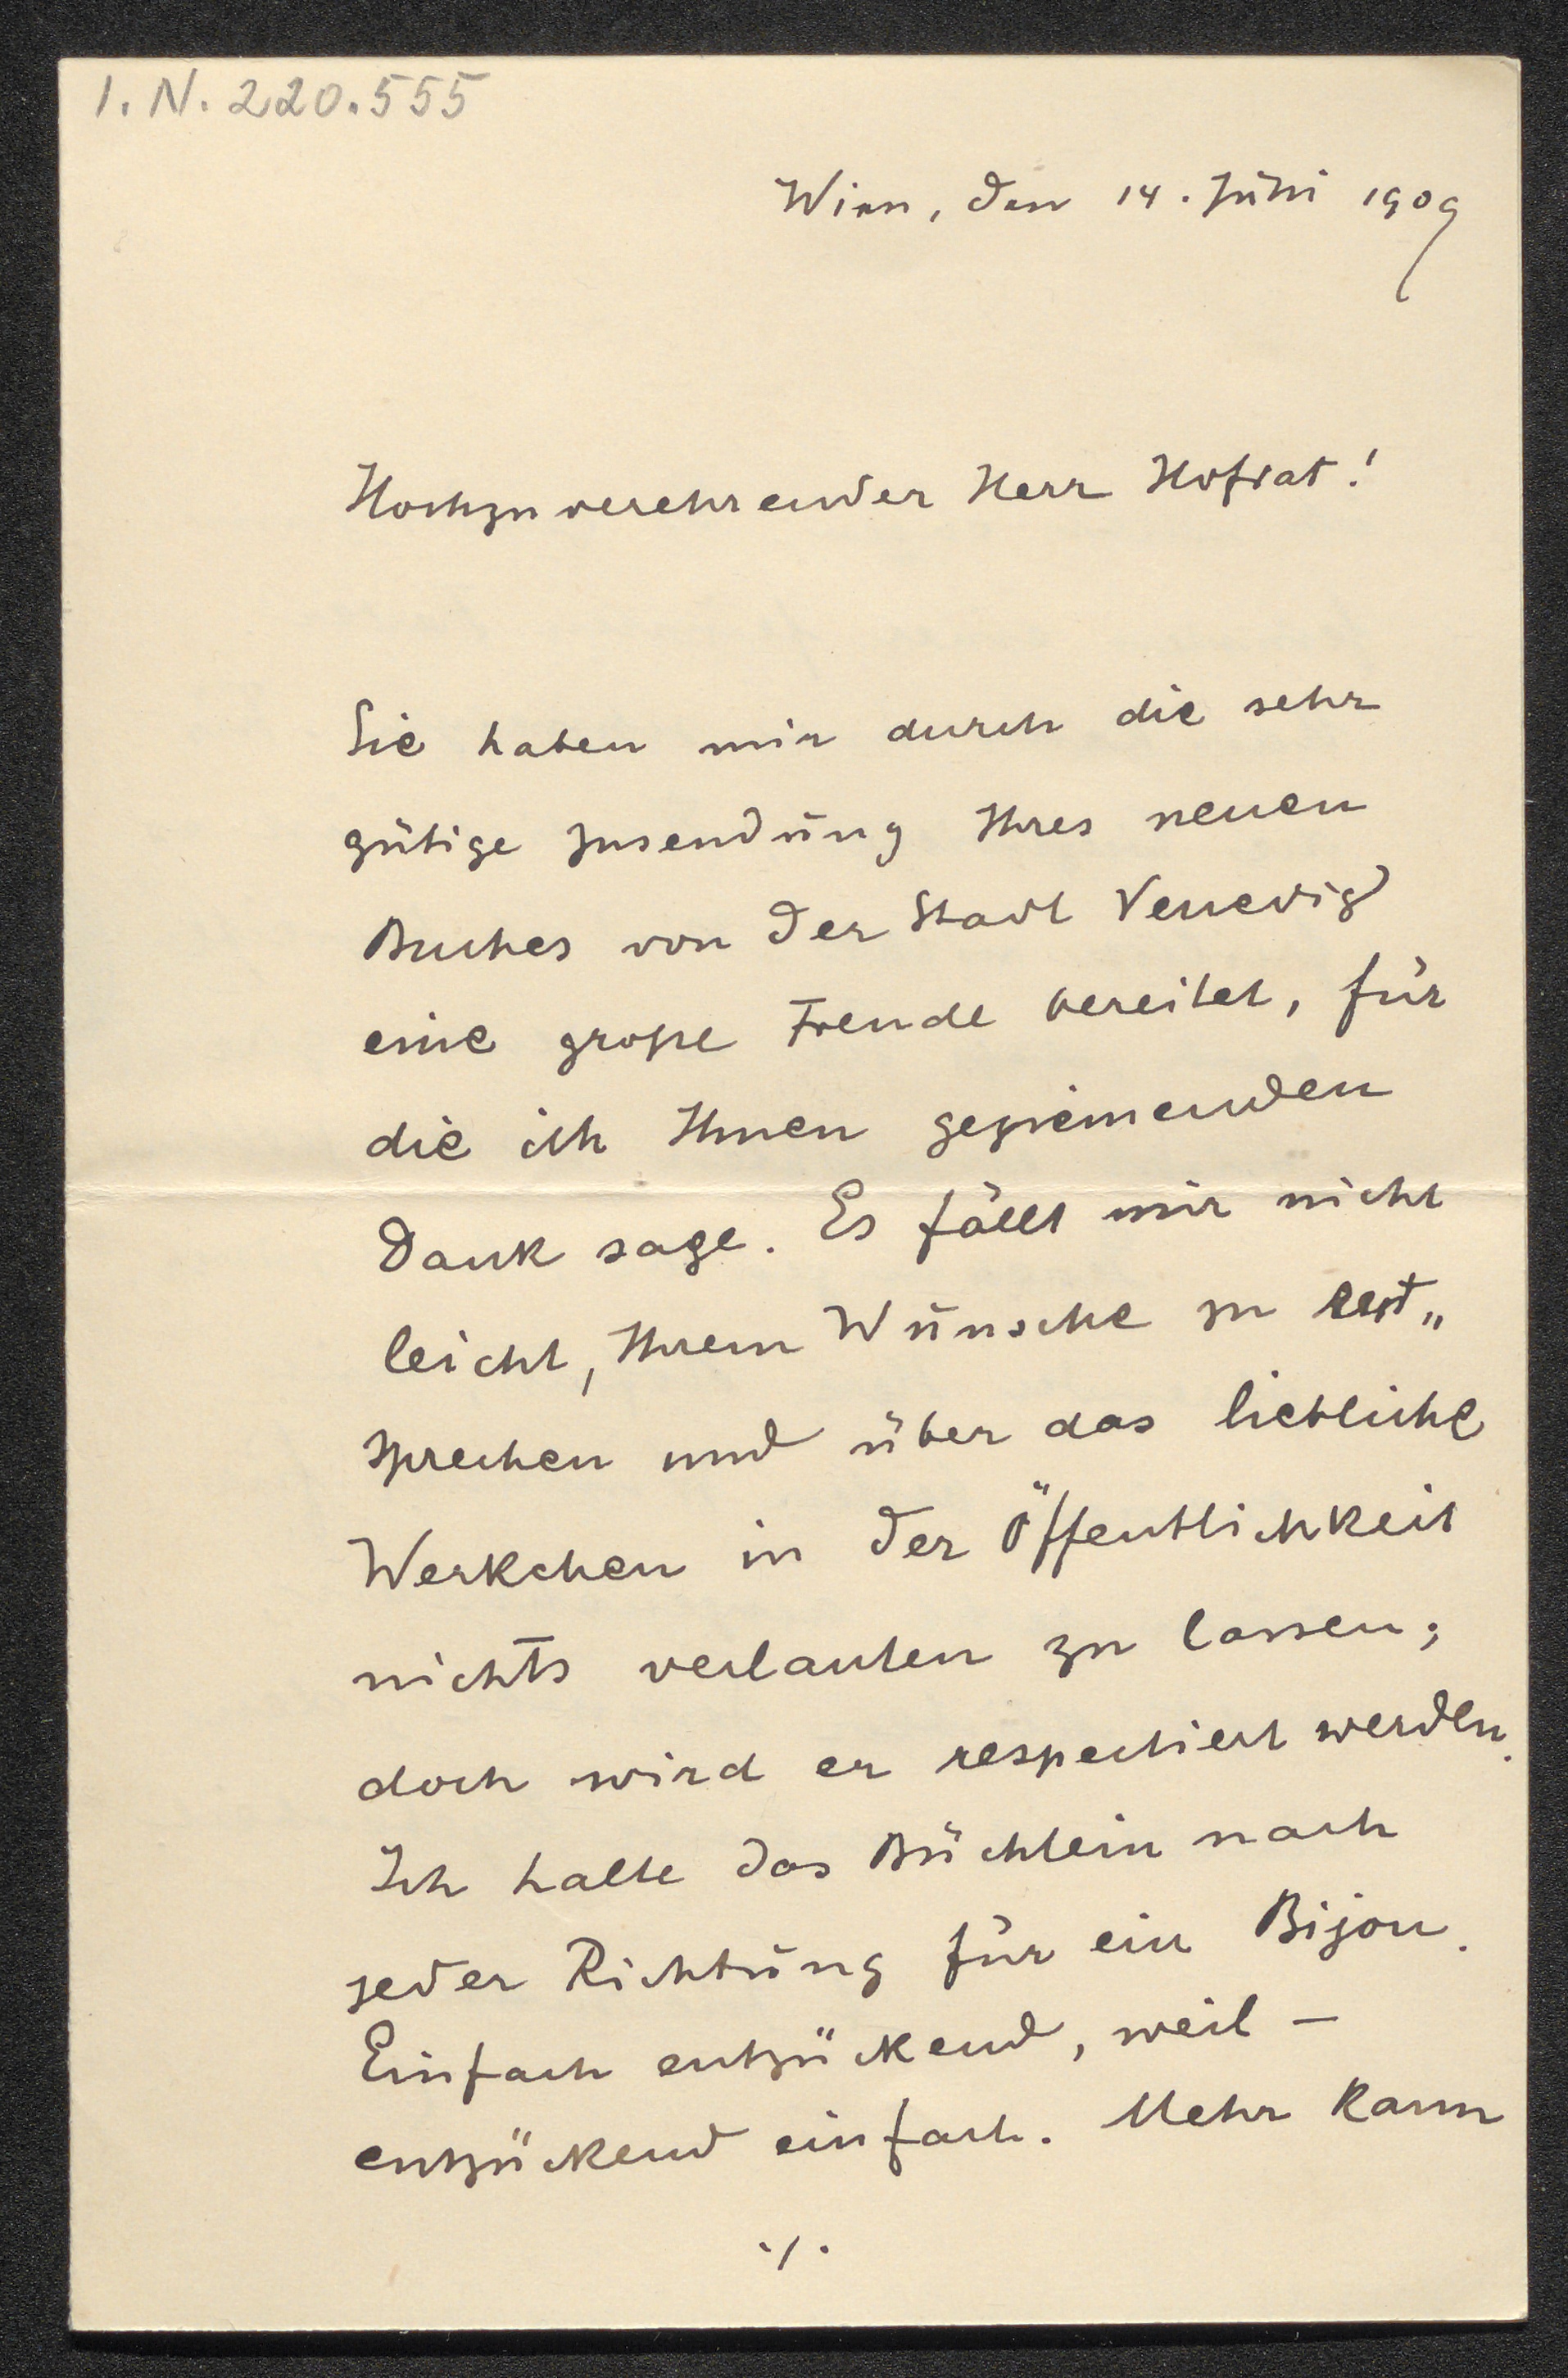 I. N. 220.555
Wien, den 14. Juni 1909
Hochzuverehrender Herr Hofrat!
Sie haben mir durch die sehr
gütige Zusendung Ihres neuen
Buches von der Stadt Venedig
eine große Freude bereitet, für
die ich Ihnen geziemenden
Dank sage. Es fällt mir nicht
leicht, Ihrem Wunsche zu ent„
sprechen und über das liebliche
Werkchen in der Öffentlichkeit
nichts verlauten zu lassen;
doch wird er respectiert werden.
Ich halte das Büchlein nach
jeder Richtung für ein Bijou.
Einfach entzückend, weil –
entzückend einfach. Mehr kann
./.